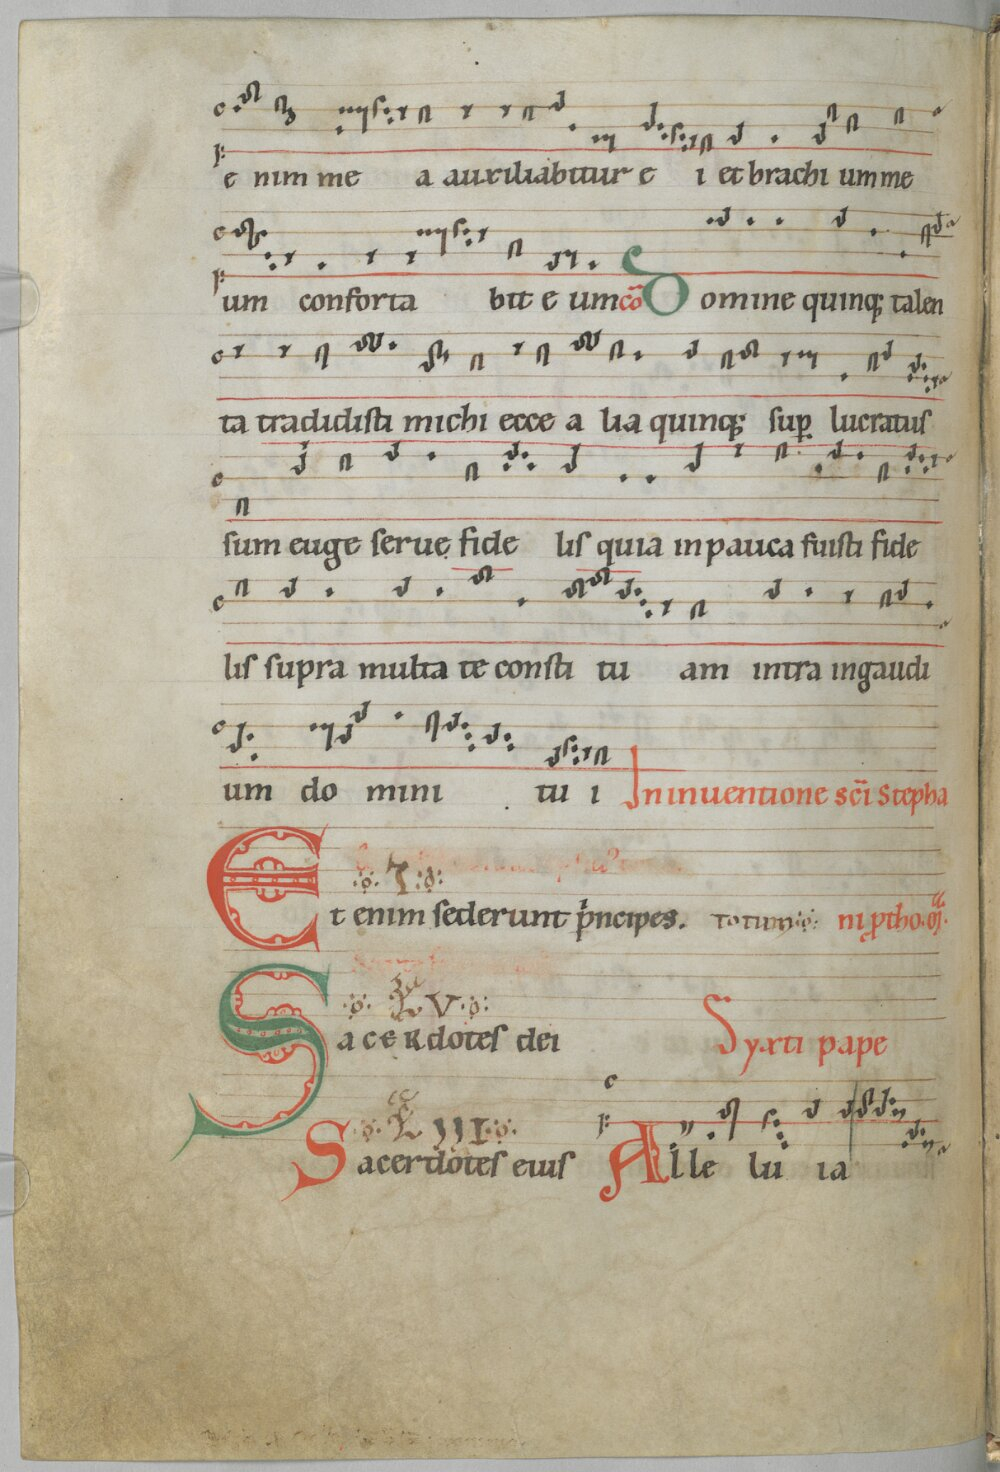 e nim me a auxiliabitur e i et brachi um me
um conforta bit e um cō Domine quinq; talen
ta tradidisti michi ecce a lia quinq; sup lucratus
sum euge serue fide lis quia in pauca fuisti fide
lis supra multa te consti tu am intra in gaudi
um do mini tu i In inuentione sc̄i stepha
Et enim sederunt pͥncipes. totum ni ꝓtho
Sacerdotes dei Syxti pape
Sacerdotes eius Alle lu ia